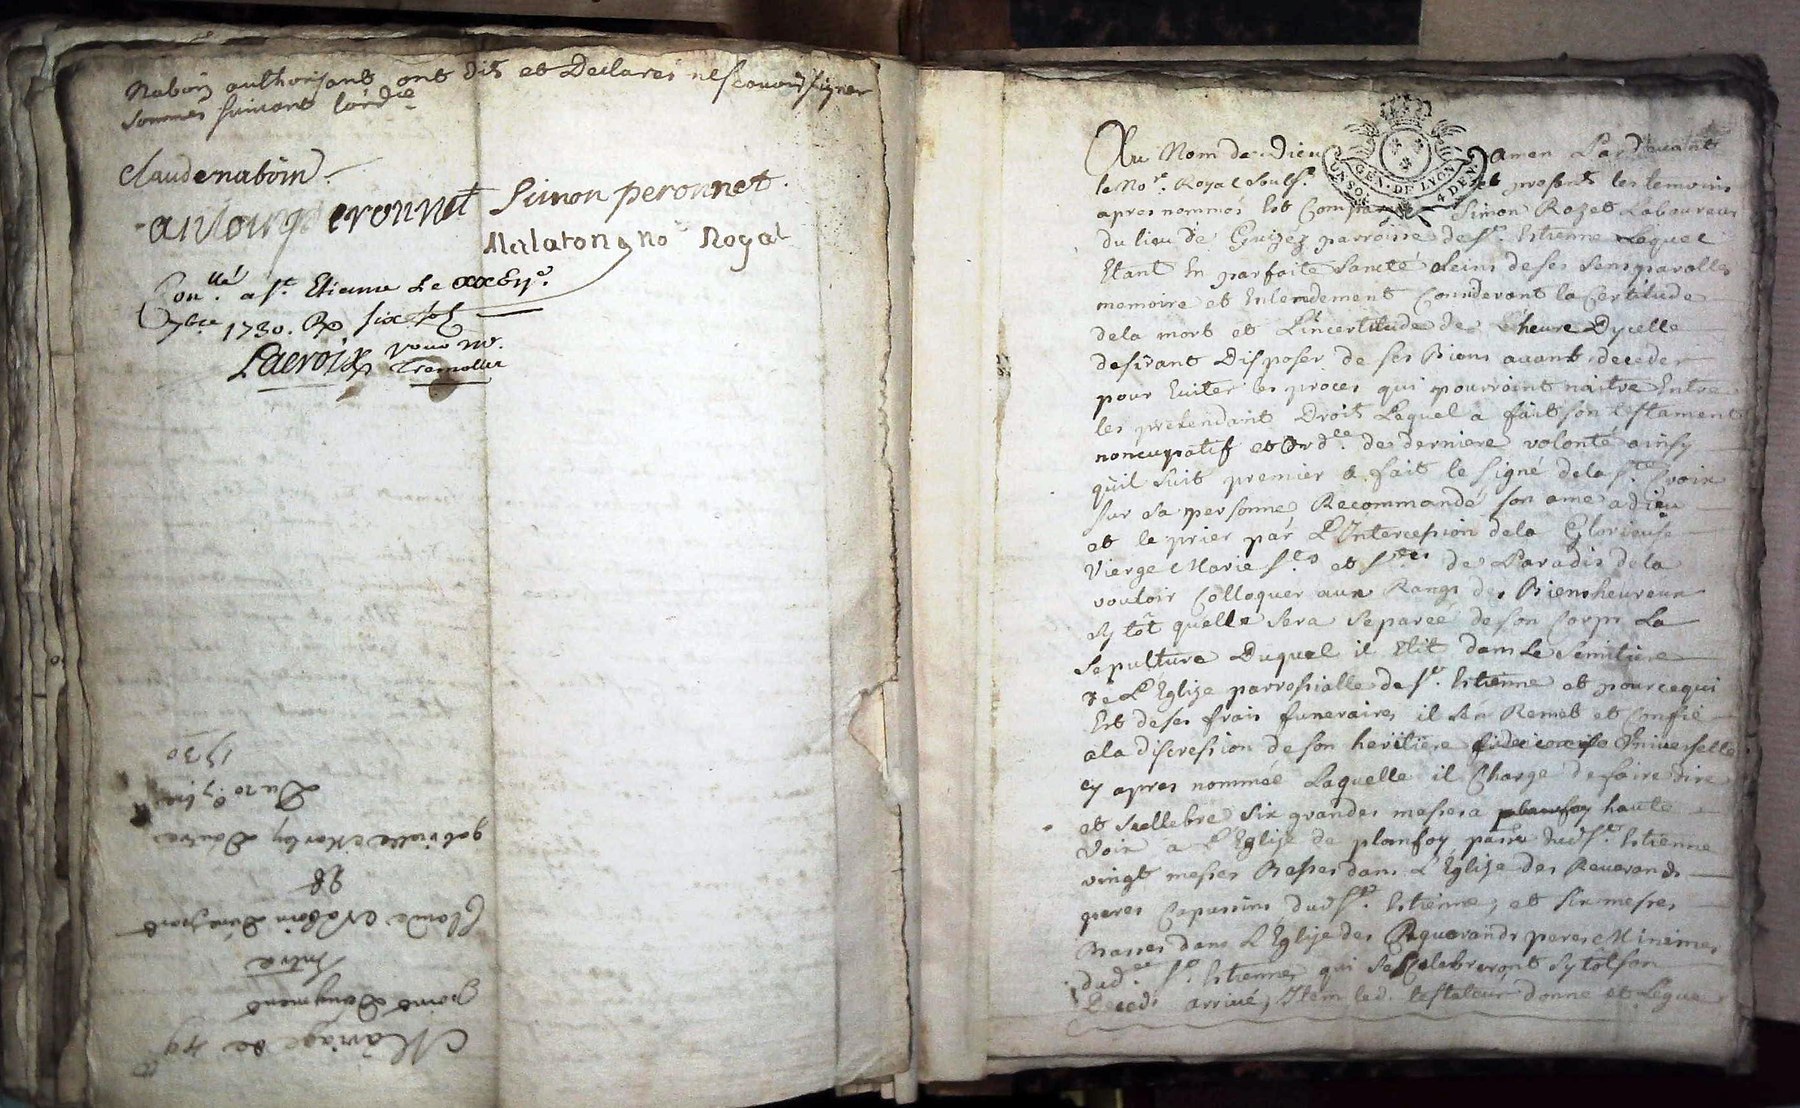 Naboin authorisant ont dit et Declarés ne scavoir signer
sommés suivant lord.ce
Claude naboin
antoine peronnet Simon peronnet
Malaton gno Royal
Con.llé a S.t Etienne Le
7bre 1730. R. six sols
Lacroix
Tremollet
Mariage de
quont D'augment
Entre
Claude Naboin D'une part
98
gabrielle D'autre
Du 10.e 7bre
1730
Au Nom de Dieu amen Pardevant
le No.re Royal Souls.e et presents les temoins
apres nommés Est Comparu Simon Rozet Laboureur
du lieu de parroisse de S.t Estienne Lequel
Etant En parfaite Sancté Seins de ses Sens parolle
memoire et Entendement Considerant la Certitude
dela mort et L'incertitude de Lheure Dycelle
desirant Disposer de ses Biens avant deceder
pour Eviter les proces qui pourroint naitre Entre
les pretendant Droit Lequel a fait son testament
noncupatif et Ord.ce de derniere volonté ainsy
quil suit premier a fait le signe dela S.te Croix
sur sa personne Recommandé son ame a dieu
et le prier par L'Intercession dela Glorieuse
Vierge Marie S.ts et S.tes de Paradis dela
vouloir Colloquer aux Rangs des Bienheureux
sy tôt quelle sera separée de son Corps La
sepulture Duquel il Elit dans Le Semitiere
de L'Eglise parrossialle de S.t Estienne et pour ce qui
Est de ses frais funeraires il sen Remet et Confie
a la discression de son heritiere Universelle
cy apres nommée Laquelle il Charge de faire dire
et scellebre six grandes messes a haute
Voix a L'Eglise de planfoy parre dud S.t Estienne
vingt messes Basses dans L'Eglise des Reverands
peres Capussins dud S.t Estienne, et six messes
Basses dans L'Eglise des Reverands peres Minimes
dud. S.t Estienne qui se Celebreront sytot son
Decedz arrivé, Item led. testateur donne et Legue